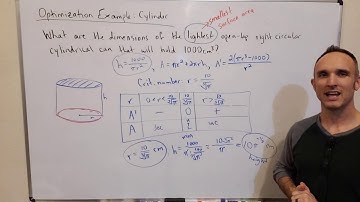 Optimization Example: Cylinder
→ smallest surface area
What are the dimensions of the lightest open-top right circular
cylindrical can that will hold 1000cm³?
h = 1000/πr², A = πr² + 2πrh, A' = 2(πr³-1000)/r²
Crit. number: r = 10/∛π
r | 0<r<10/∛π | 10/∛π | r>10/∛π
A' | - | 0 | +
A
min
r = 10/∛π cm
h
r